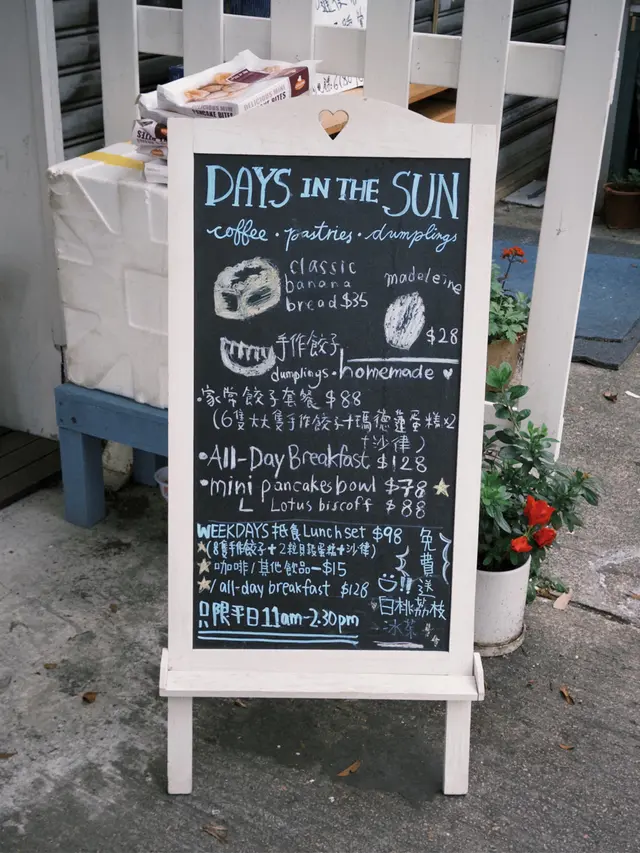 DELICIOUS MINI
PANCAKE BITES
DAYS IN THE SUN
coffee · pastries · dumplings
classic
banana
bread $35
madeleine
$28
手作餃子
dumplings · homemade ♥
·家常餃子套餐 $88
(6隻大大隻手作餃子+瑪德蓮蛋糕x2
+沙律)
•All-Day Breakfast $128
•mini pancakes bowl $78
L Lotus biscoff $88
WEEKDAYS 抵食 Lunch set $98
(8隻手作餃子+2粒貝殼蛋糕+沙律)
咖啡/其他飲品-$15
/all-day breakfast $128
只限平日11am-2.30pm
免費送
!!
白桃荔枝
冰茶